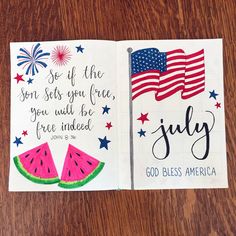 So if the
son sets you free,
you will be
free indeed
JOHN 8:36
july
GOD BLESS AMERICA